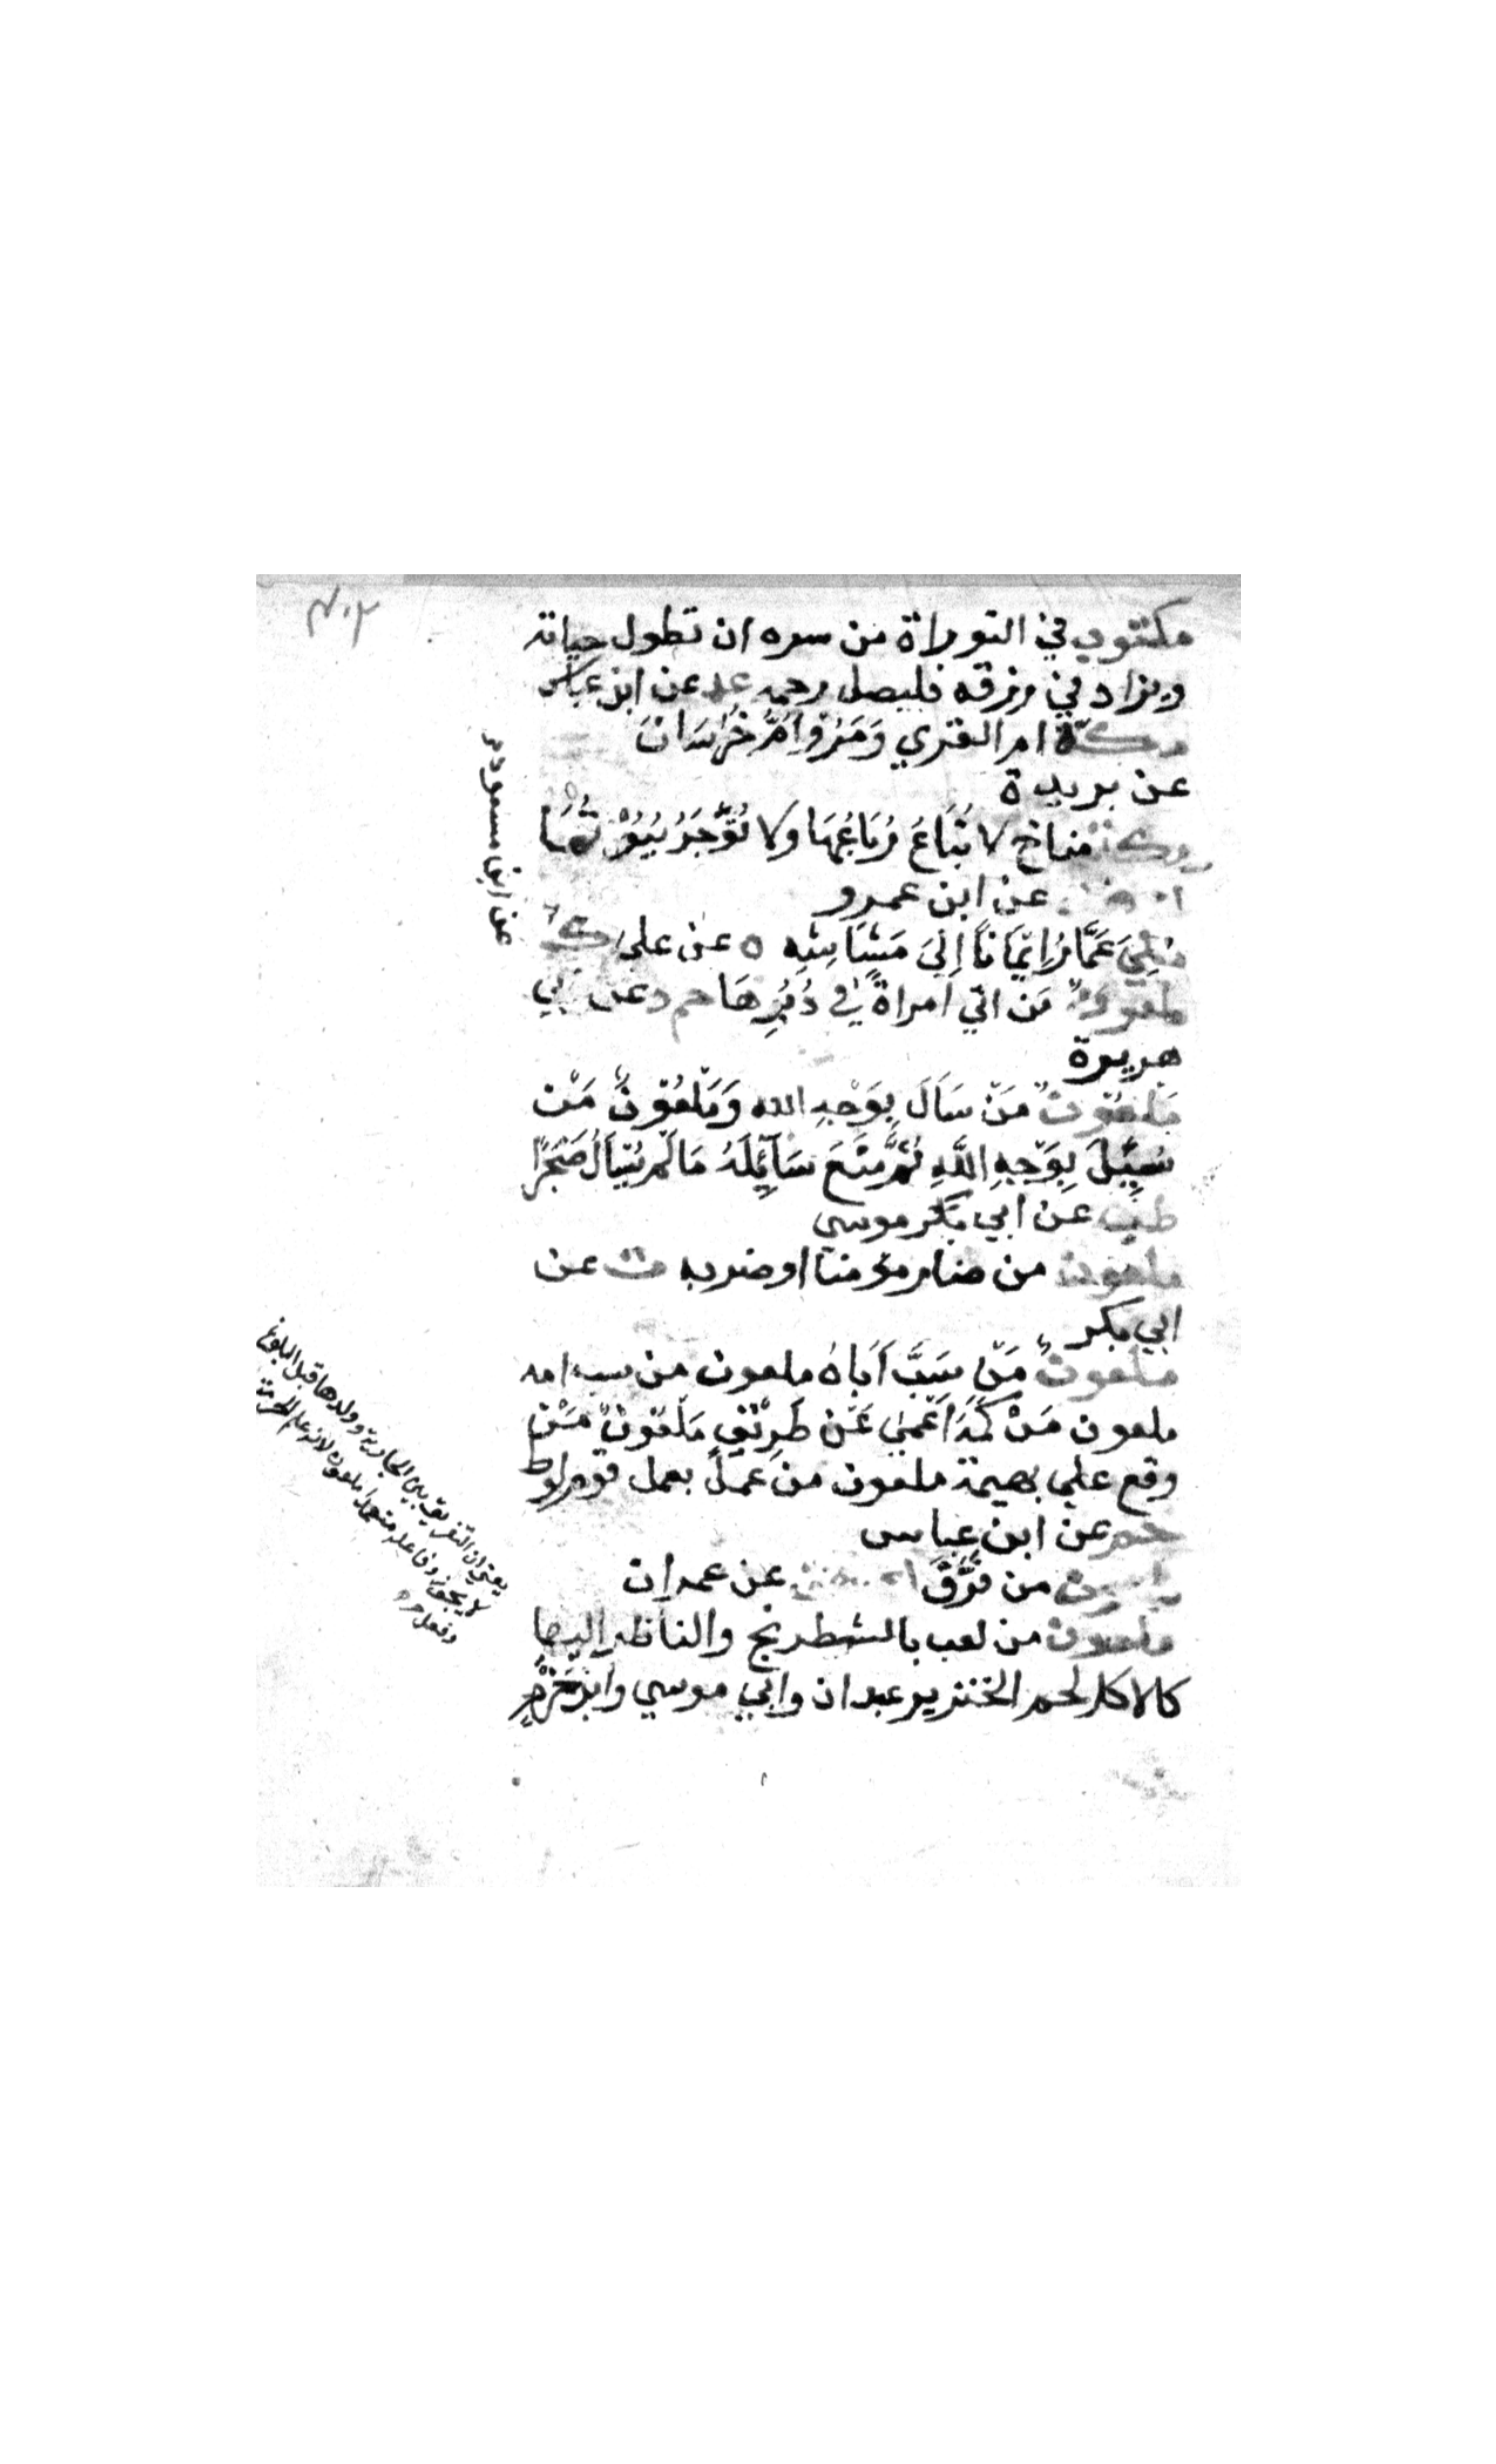 مكتوب في التوراة من سره ان تطول حياته
ويزاد في رزقه فليصل رحمه عن ابن عباس
مكة ام القري وَمَرْوُ اُمُّ خُرَاسَانَ
عن بريدة
مكة مناخ لا تُبَاعُ رُبَاعُهَا ولا تُؤَجَرُ بُيُوْتُهَا
عن ابن عمرو
مُلِئَ عَمَّارُ اِيْمَانًا اِلَىَ مَشَاشِهِ ه عن علي ك
عن ابن مسعود
ملعون مَن اتي امراةً فِي دُبُرِهَا حم د عن ابي
هريرة
مَلْعُوْنٌ مَنْ سَاَلَ بِوَجْهِ الله وَمَلْعُوْنٌ مَنْ
سُئِلَ بِوَجْهِ اللَّهِ ثُمَّ مَنَعَ سَآئِلَهُ مَالَمْ يُسْاَلُ هَجْرًا
طب عن ابي بكر موسي
ملعون من ضار مؤمنا او ضربه ت عن
ابي بكر
ملعون مَنْ سَبَّ اَبَاهُ ملعون من سب امه
ملعون مَنْ كَمَهَ اَعْمَي عَنْ طَرِيْقٍ مَلْعُوْنٌ مَنْ
وقع علي بهيمة ملعون من عَمِلَ بعمل قوم لوط
حم عن ابن عباس
ملعون من فَرَّقَ عن عمران
ملعون من لعب بالشطرنج والناظر اليها
كالاكل لحم الخنزير عبدان وابي موسي وابن حَزْمٍ
يعني ان التفريق بين الجارية وولدها قبل البلوغ
لا يجوز وفاعله متعمدا ملعون لانه علم الحرمة
وفعل